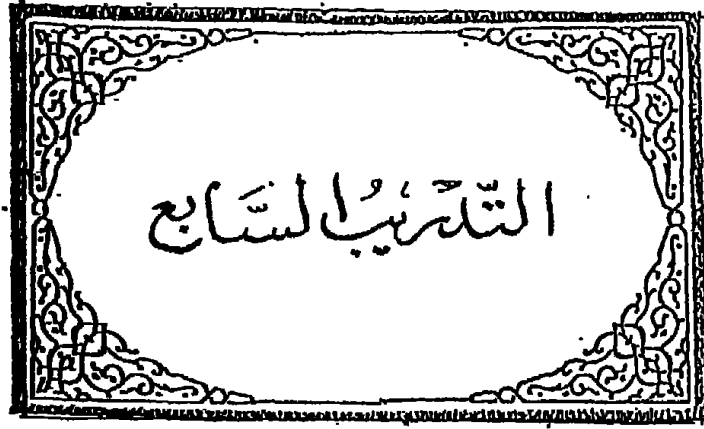 التَّدْرِيبُ السَّابع